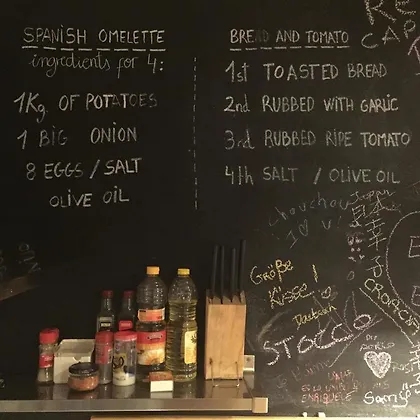 SPANISH OMELETTE
ingredients for 4:
1Kg. OF POTATOES
1 BIG ONION
8 EGGS / SALT
OLIVE OIL
BREAD AND TOMATO
1st TOASTED BREAD
2nd RUBBED WITH GARLIC
3rd RUBBED RIPE TOMATO
4th SALT / OLIVE OIL
chouchou
I ♡ U!
Japan
GRÖßE
STOCCO
Samy